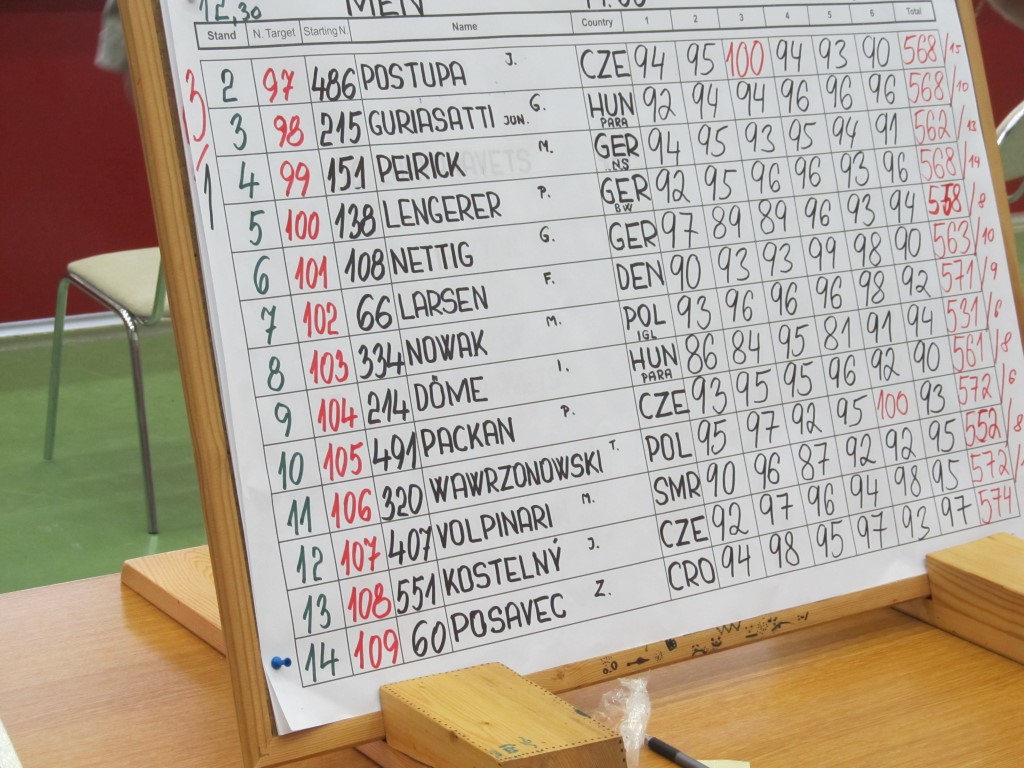 12,30 MEN
Stand N. Target Starting N Name Country 1 2 3 4 5 6 Total
2 97 486 POSTUPA J. CZE 94 95 100 94 93 90 568/15
3 98 215 GURIASATTI JUN. G. HUN PARA 92 94 94 96 96 96 568/10
4 99 151 PEIRICK M. GER NS 94 95 93 95 94 91 562/13
5 100 138 LENGERER P. GER BW 92 95 96 96 93 96 568/14
6 101 108 NETTIG G. GER 97 89 89 96 93 94 558/8
7 102 66 LARSEN F. DEN 90 93 93 99 98 90 563/10
8 103 334 NOWAK M. POL IGL 93 96 96 96 98 92 571/9
9 104 214 DÖME I. HUN PARA 86 84 95 81 91 94 531/6
10 105 491 PACKAN P. CZE 93 95 95 96 92 90 561/8
11 106 320 WAWRZONOWSKI T. POL 95 97 92 95 100 93 572/6
12 107 407 VOLPINARI M. SMR 90 96 87 92 92 95 552/8
13 108 551 KOSTELNÝ J. CZE 92 97 96 94 98 95 572/
14 109 60 POSAVEC Z. CRO 94 98 95 97 93 97 574